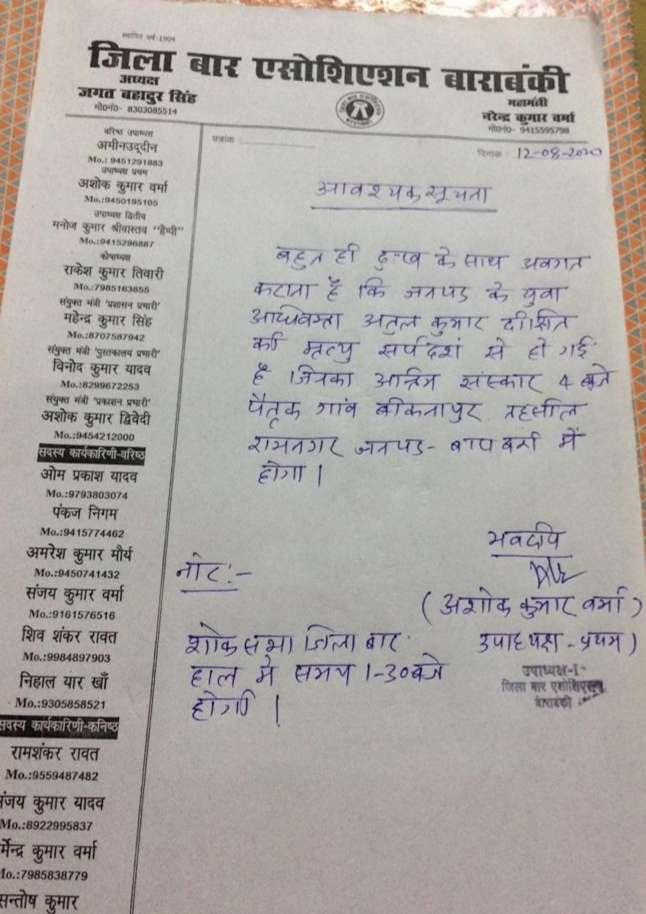 स्थापित वर्ष-1904
जिला बार एसोशिएशन बाराबंकी
अध्यक्ष
जगत बहादुर सिंह
मो०नं०- 8303085514
महामंत्री
नरेन्द्र कुमार वर्मा
मो०नं०- 9415595798
पत्रांक
दिनांक 12-08-2020
वरिष्ठ उपाध्यक्ष
अमीनउद्दीन
Mo.: 9451291883
उपाध्यक्ष प्रथम
अशोक कुमार वर्मा
Mo.:9450195105
उपाध्यक्ष द्वितीय
मनोज कुमार श्रीवास्तव "हैप्पी"
Mo.:9415296887
कोषाध्यक्ष
राकेश कुमार तिवारी
Mo.:7985163655
संयुक्त मंत्री 'प्रशासन प्रभारी'
महेन्द्र कुमार सिंह
Mo.:8707587942
संयुक्त मंत्री 'पुस्तकालय प्रभारी'
विनोद कुमार यादव
Mo.:8299672253
संयुक्त मंत्री 'प्रकाशन प्रभारी'
अशोक कुमार द्विवेदी
Mo.:9454212000
सदस्य कार्यकारिणी-वरिष्ठ
ओम प्रकाश यादव
Mo.:9793803074
पंकज निगम
Mo.:9415774462
अमरेश कुमार मौर्य
Mo.:9450741432
संजय कुमार वर्मा
Mo.:9161576516
शिव शंकर रावत
Mo.:9984897903
निहाल यार खाँ
Mo.:9305858521
सदस्य कार्यकारिणी-कनिष्ठ
रामशंकर रावत
Mo.:9559487482
संजय कुमार यादव
Mo.:8922995837
र्मेन्द्र कुमार वर्मा
Mo.:7985838779
सन्तोष कुमार
आवश्यक सूचना
बहुत ही दुःख के साथ अवगत
कराना है कि जनपद के युवा
अधिवक्ता अतुल कुमार दीक्षित
की मृत्यु सर्पदंश से हो गई
है जिनका अन्तिम संस्कार 4 बजे
पैतृक गांव तहसील
रामनगर जनपद- बाराबंकी में
होगा।
भवदीय
(अशोक कुमार वर्मा)
उपाध्यक्ष-प्रथम)
उपाध्यक्ष-I
जिला बार एशोशिएसन
बाराबंकी
नोट:-
शोक सभा जिला बार
हाल में समय 1-30 बजे
होगी।